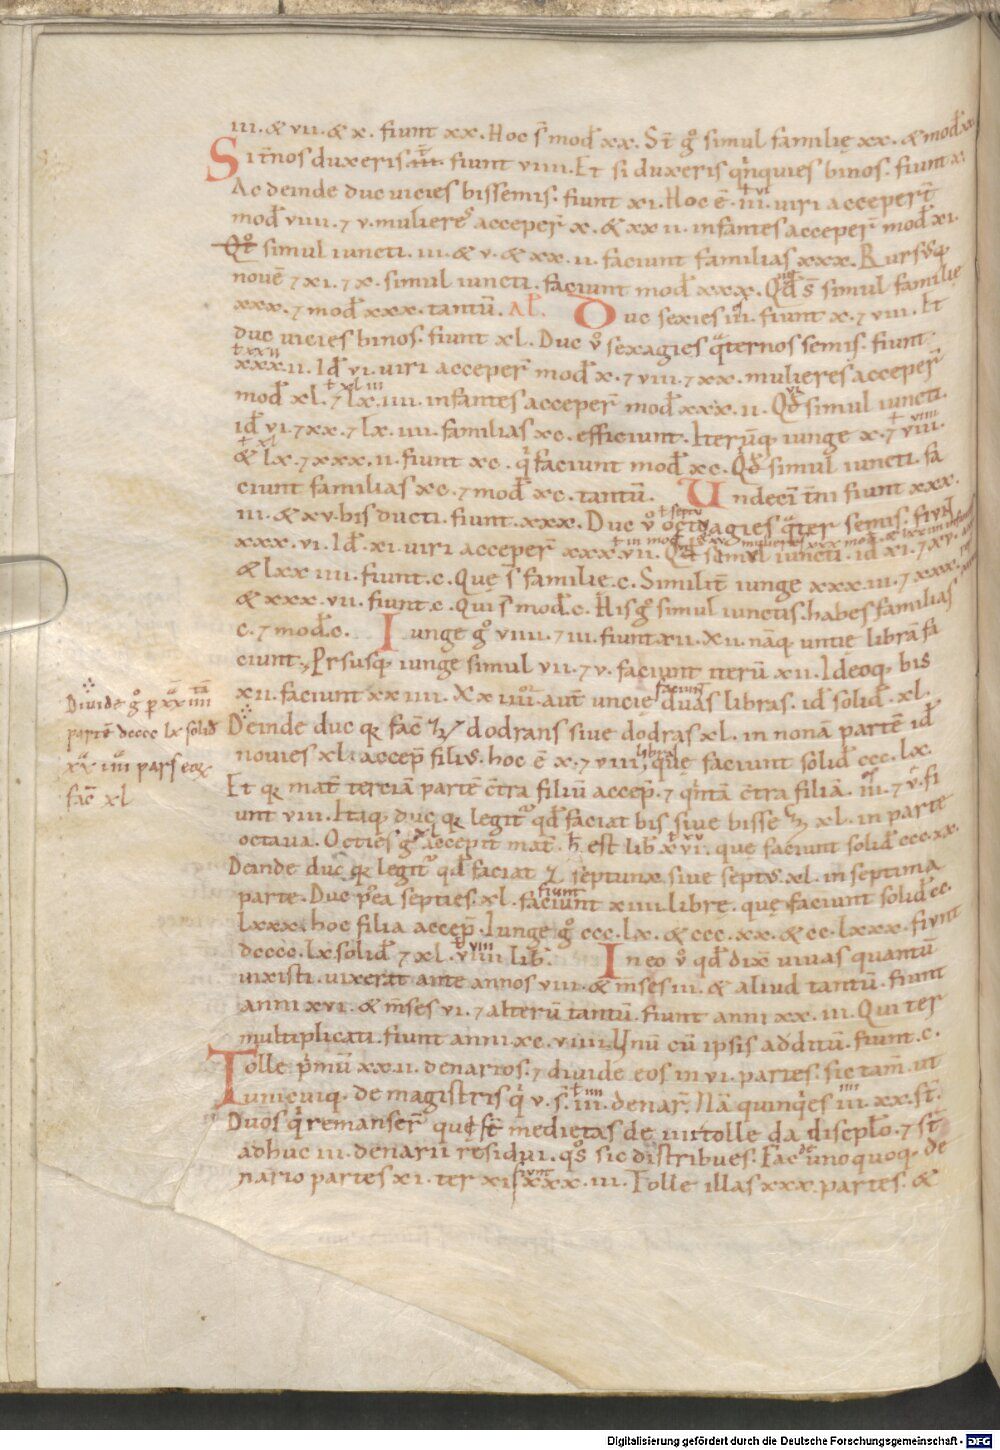 iii. & vii. & x. fiunt xx. Hoc s̄ mod̄ xx. St̄ gͦ simul familię xx. & mod̄ xx
Si t̄nos duxeris iii. fiunt viiii. Et si duxeris qͥnquies binos. fiunt x.
Ac deinde duc vicies bissemis. fiunt xi. Hoc ē. iii. viri acceper̄t
mod̄ viiii. ⁊ v. mulieres acceper̄ x. & xx ii. infantes acceper̄ mod̄ xi.
Qd̄ simul iuncti. iii. & v. & xx. ii. faciunt familias xxx. Rursusq;
novē ⁊ xi. ⁊ x. simul iuncti. faciunt mod̄ xxx. Qd̄ s̄ simul familię
xxx. ⁊ mod̄ xxx. tantū. Al. Duc sexies iii. fiunt x. ⁊ viii. Et
duc vicies binos. fiunt xl. Duc v̊ sexagies qͣternos semis. fiunt
xxx.ii. Id̄ vi. viri acceper̄ mod̄ x. ⁊ viii. ⁊ xx. mulieres acceper̄
mod̄ xl. ⁊ lx. iiii. infantes acceper̄ mod̄ xxx. ii. Qd̄ simul iuncti.
id̄ vi. ⁊ xx. ⁊ lx. iiii. familias xc. efficiunt. Iterūq; iunge x. ⁊ viii.
& lx. ⁊ xxx. ii. fiunt xc. qͥ faciunt mod̄ xc. Qd̄ simul iuncti. fa
ciunt familias xc. ⁊ mod̄ xc. tantū. Undeci t̄ni fiunt xxx.
iii. & xv. bis ducti. fiunt. xxx. Duc v̊ octuagies qͣter semis. fiunt
xxx. vi. Id̄. xi. viri acceper̄ xxx. vii. Qd̄ simul iuncti. id̄ xi. ⁊ xv.
& lxx iiii. fiunt. c. Quę s̄ familie. c. Similit̄ iunge xxx. iii. ⁊ xxx.
& xxx. vii. fiunt. c. Qui s̄ mod̄. c. His gͦ simul iunctis. habes familias
c. ⁊ mod̄. c. Iunge gͦ viiii. ⁊ iii. fiunt xii. Xii. nāq; untię librā fa
ciunt. Rursusq; iunge simul vii. ⁊ v. faciunt iterū xii. Ideoq; bis
xii. faciunt xx iiii. Xx iiii. aut̄ uncię faciunt duas libras. id̄ solid̄. xl.
Divide gͦ p xx iiii tā
partē dcccc lx solid̄
xx iiii pars eoꝝ
fac̄ xl
Deinde duc qͥ fac̄ dodrans sive dodras xl. in nonā partē id̄
novies xl. accep̄ filius. hoc ē x. ⁊ viii. libras qͥ faciunt solid̄ ccc. lx.
Et qͥ mat̄ terciā partē c̄tra filiū accep̄. ⁊ qͥntā c̄tra filiā. iii. ⁊ v. fi
unt viii. Itaq; duc qͥ legit᷑ qd̄ faciat bis sive bisse xl. in parte
octava. Octies gͦ xl accepit mat̄. h̄ est lib̄ xvi. que faciunt solid̄ ccc. xx.
Deinde duc qͥ legit᷑ qd̄ faciat septunx sive septus. xl. in septima
parte. Duc p̄ea septies. xl. faciunt xiiii. libre. quę faciunt solid̄ cc.
lxxx. hoc filia accep̄. Iunge gͦ ccc. lx. & ccc. xx. & cc. lxxx. fiunt
dcccc. lx solid̄ ⁊ xl. viii lib̄. In eo v̊ qd̄ dix̄ vivas quantū
vixisti. vixerat ante annos viii. & m̄ses iii. & aliud tantū. fiunt
anni xvi. & m̄ses vi. ⁊ alterū tantū. fiunt anni xx. iii. Qui ter
multiplicati. fiunt anni xc. viiii. Unū cū ipsis additū. fiunt. c.
Tolle pͥmū xx.ii. denarios. ⁊ divide eos in vi. partes. sic tam̄. ut
unicuiq; de magistris qͥ v. s̄. iii. denar̄. Nā quinqͥes iii. xx. st̄.
Duos qͥ remanser̄ que st̄ medietas de iiii tolle da discip̄lo. ⁊ st̄
adhuc iii. denarii residui. qͦs sic distribues. Fac de unoquoq; de
nario partes xi. ter xi fiunt xxx. iii. Tolle illas xxx. partes. &
Digitalisierung gefördert durch die Deutsche Forschungsgemeinschaft - DFG